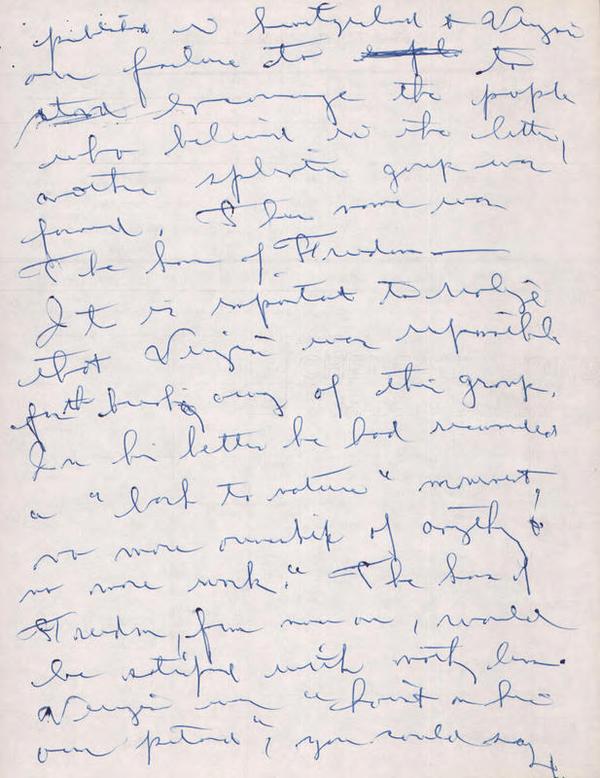 published in Switzerland & Verigin
own failure to to
encourage the people
who believed in the letter,
another splinter group was
formed. Their name was
The Sons of Freedom —
It is important to realize
that Verigin was responsible
for the breaking away of this group.
In his letter he had recommended
a "back to nature" movement,
no more ownership of anything &
no more work." The Sons of
Freedom, from now on, would
be satisfied with nothing less.
Verigin was "hoist on his
own petard", you could say,